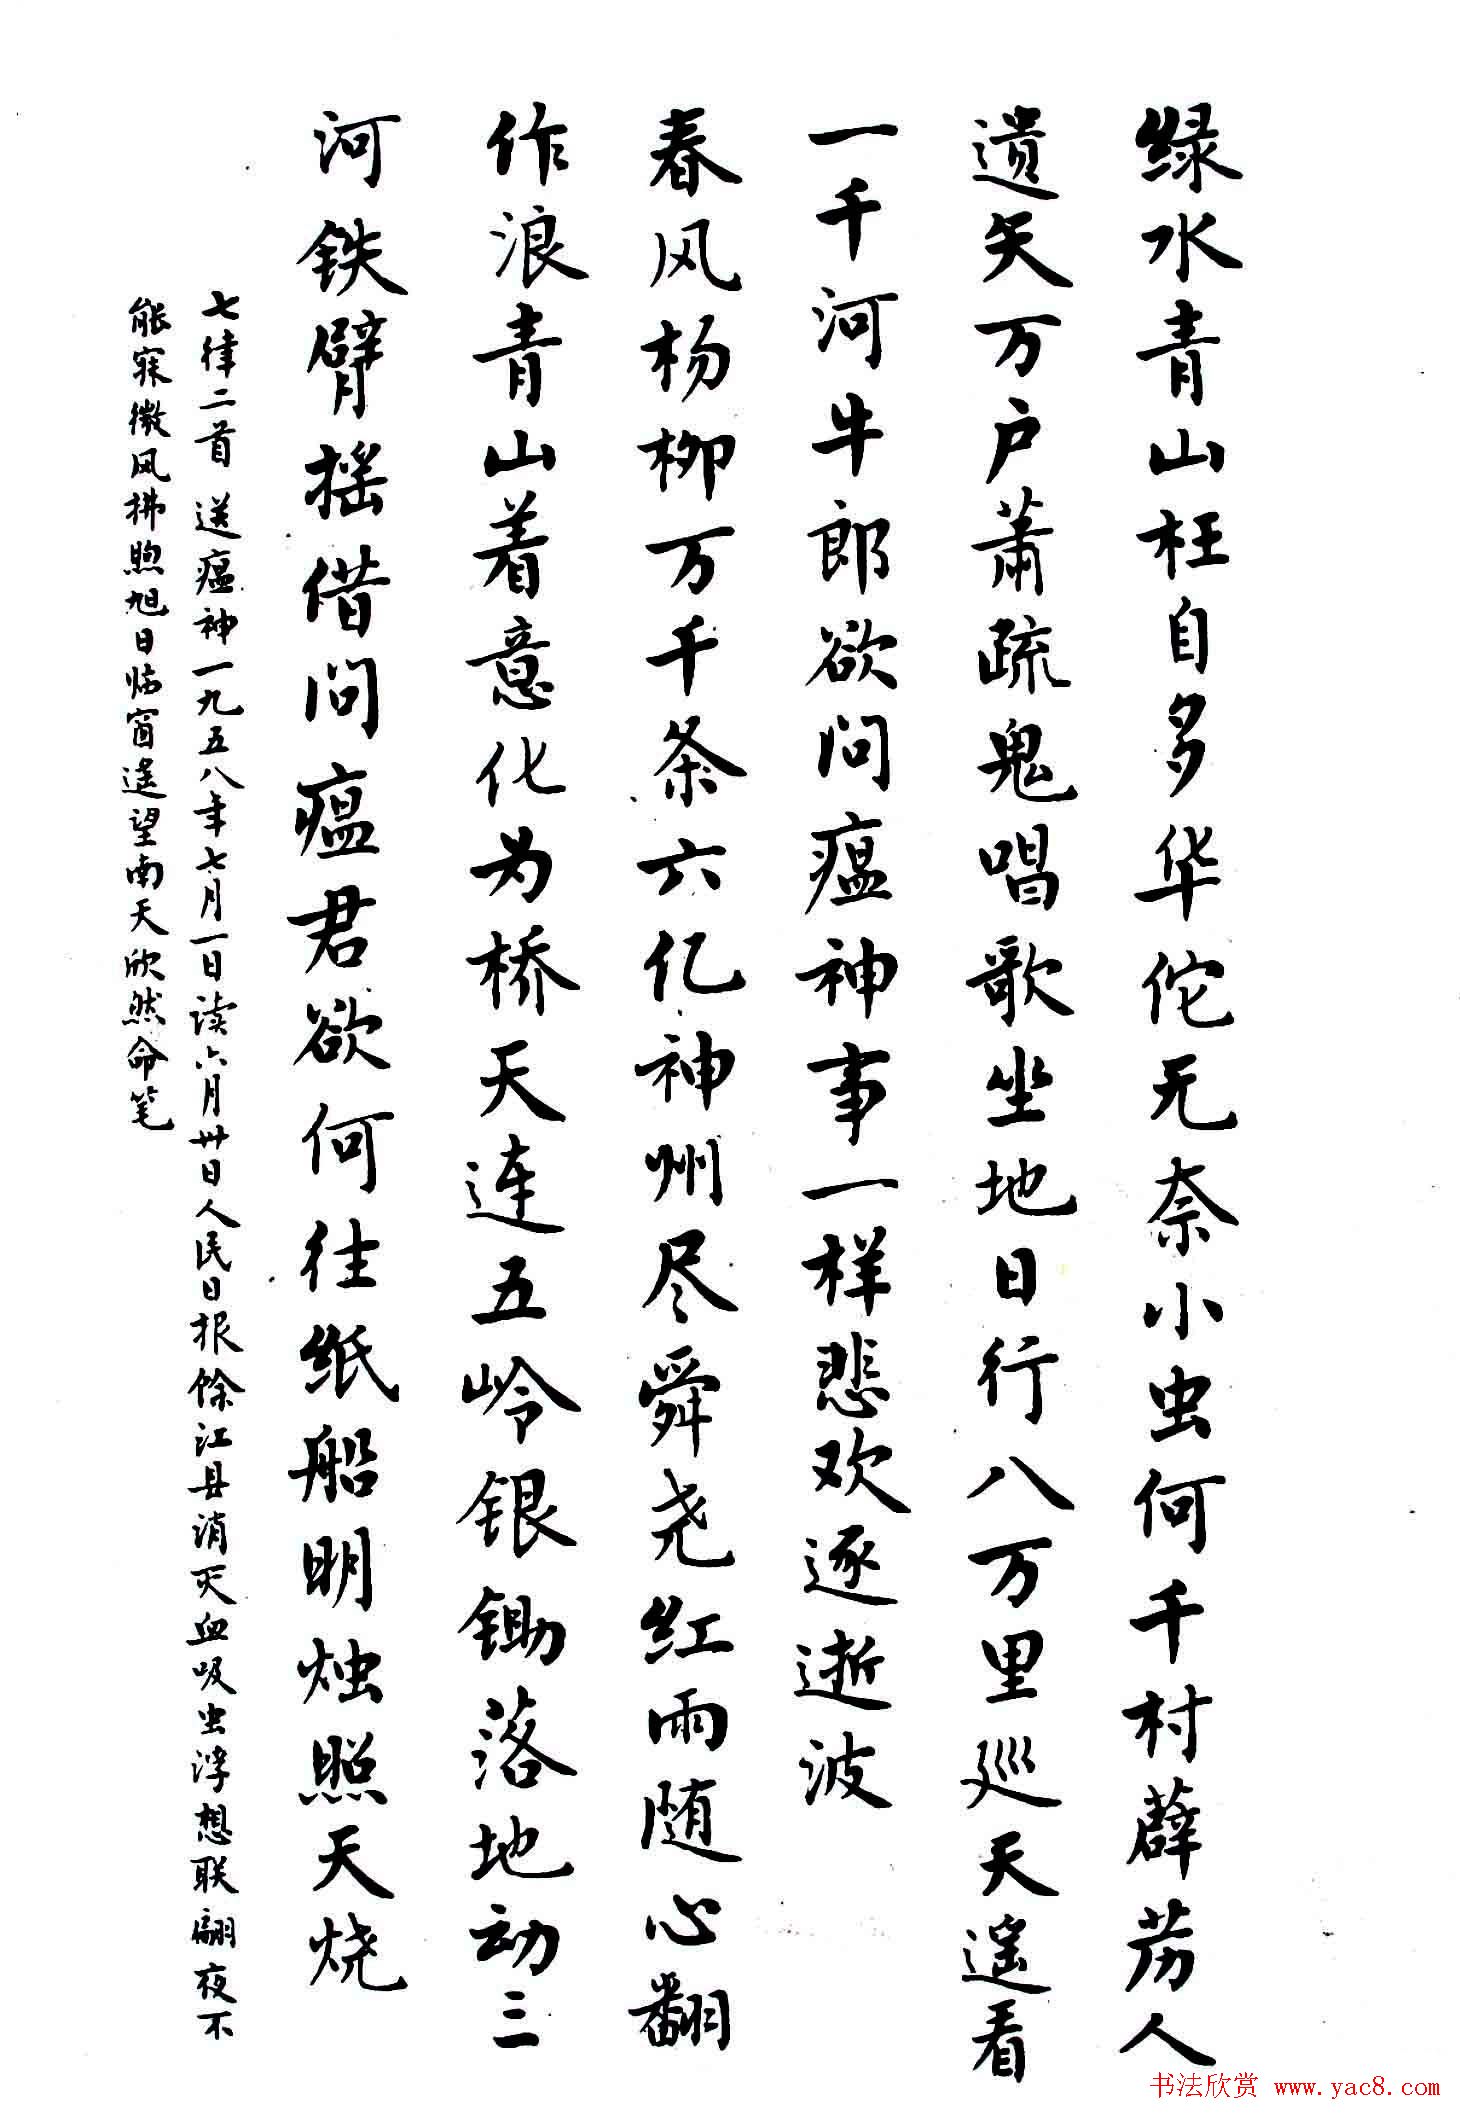 绿水青山枉自多华佗无奈小虫何千村薜苈人
遗矢万户萧疏鬼唱歌坐地日行八万里巡天遥看
一千河牛郎欲问瘟神事一样悲欢逐逝波
春风杨柳万千条六亿神州尽舜尧红雨随心翻
作浪青山着意化为桥天连五岭银锄落地动三
河铁臂摇借问瘟君欲何往纸船明烛照天烧
七律二首 送瘟神一九五八年七月一日读六月卅日人民日报馀江县消灭血吸虫浮想联翩夜不
能寐微风拂煦旭日临窗遥望南天欣然命笔
书法欣赏 www.yac8.com